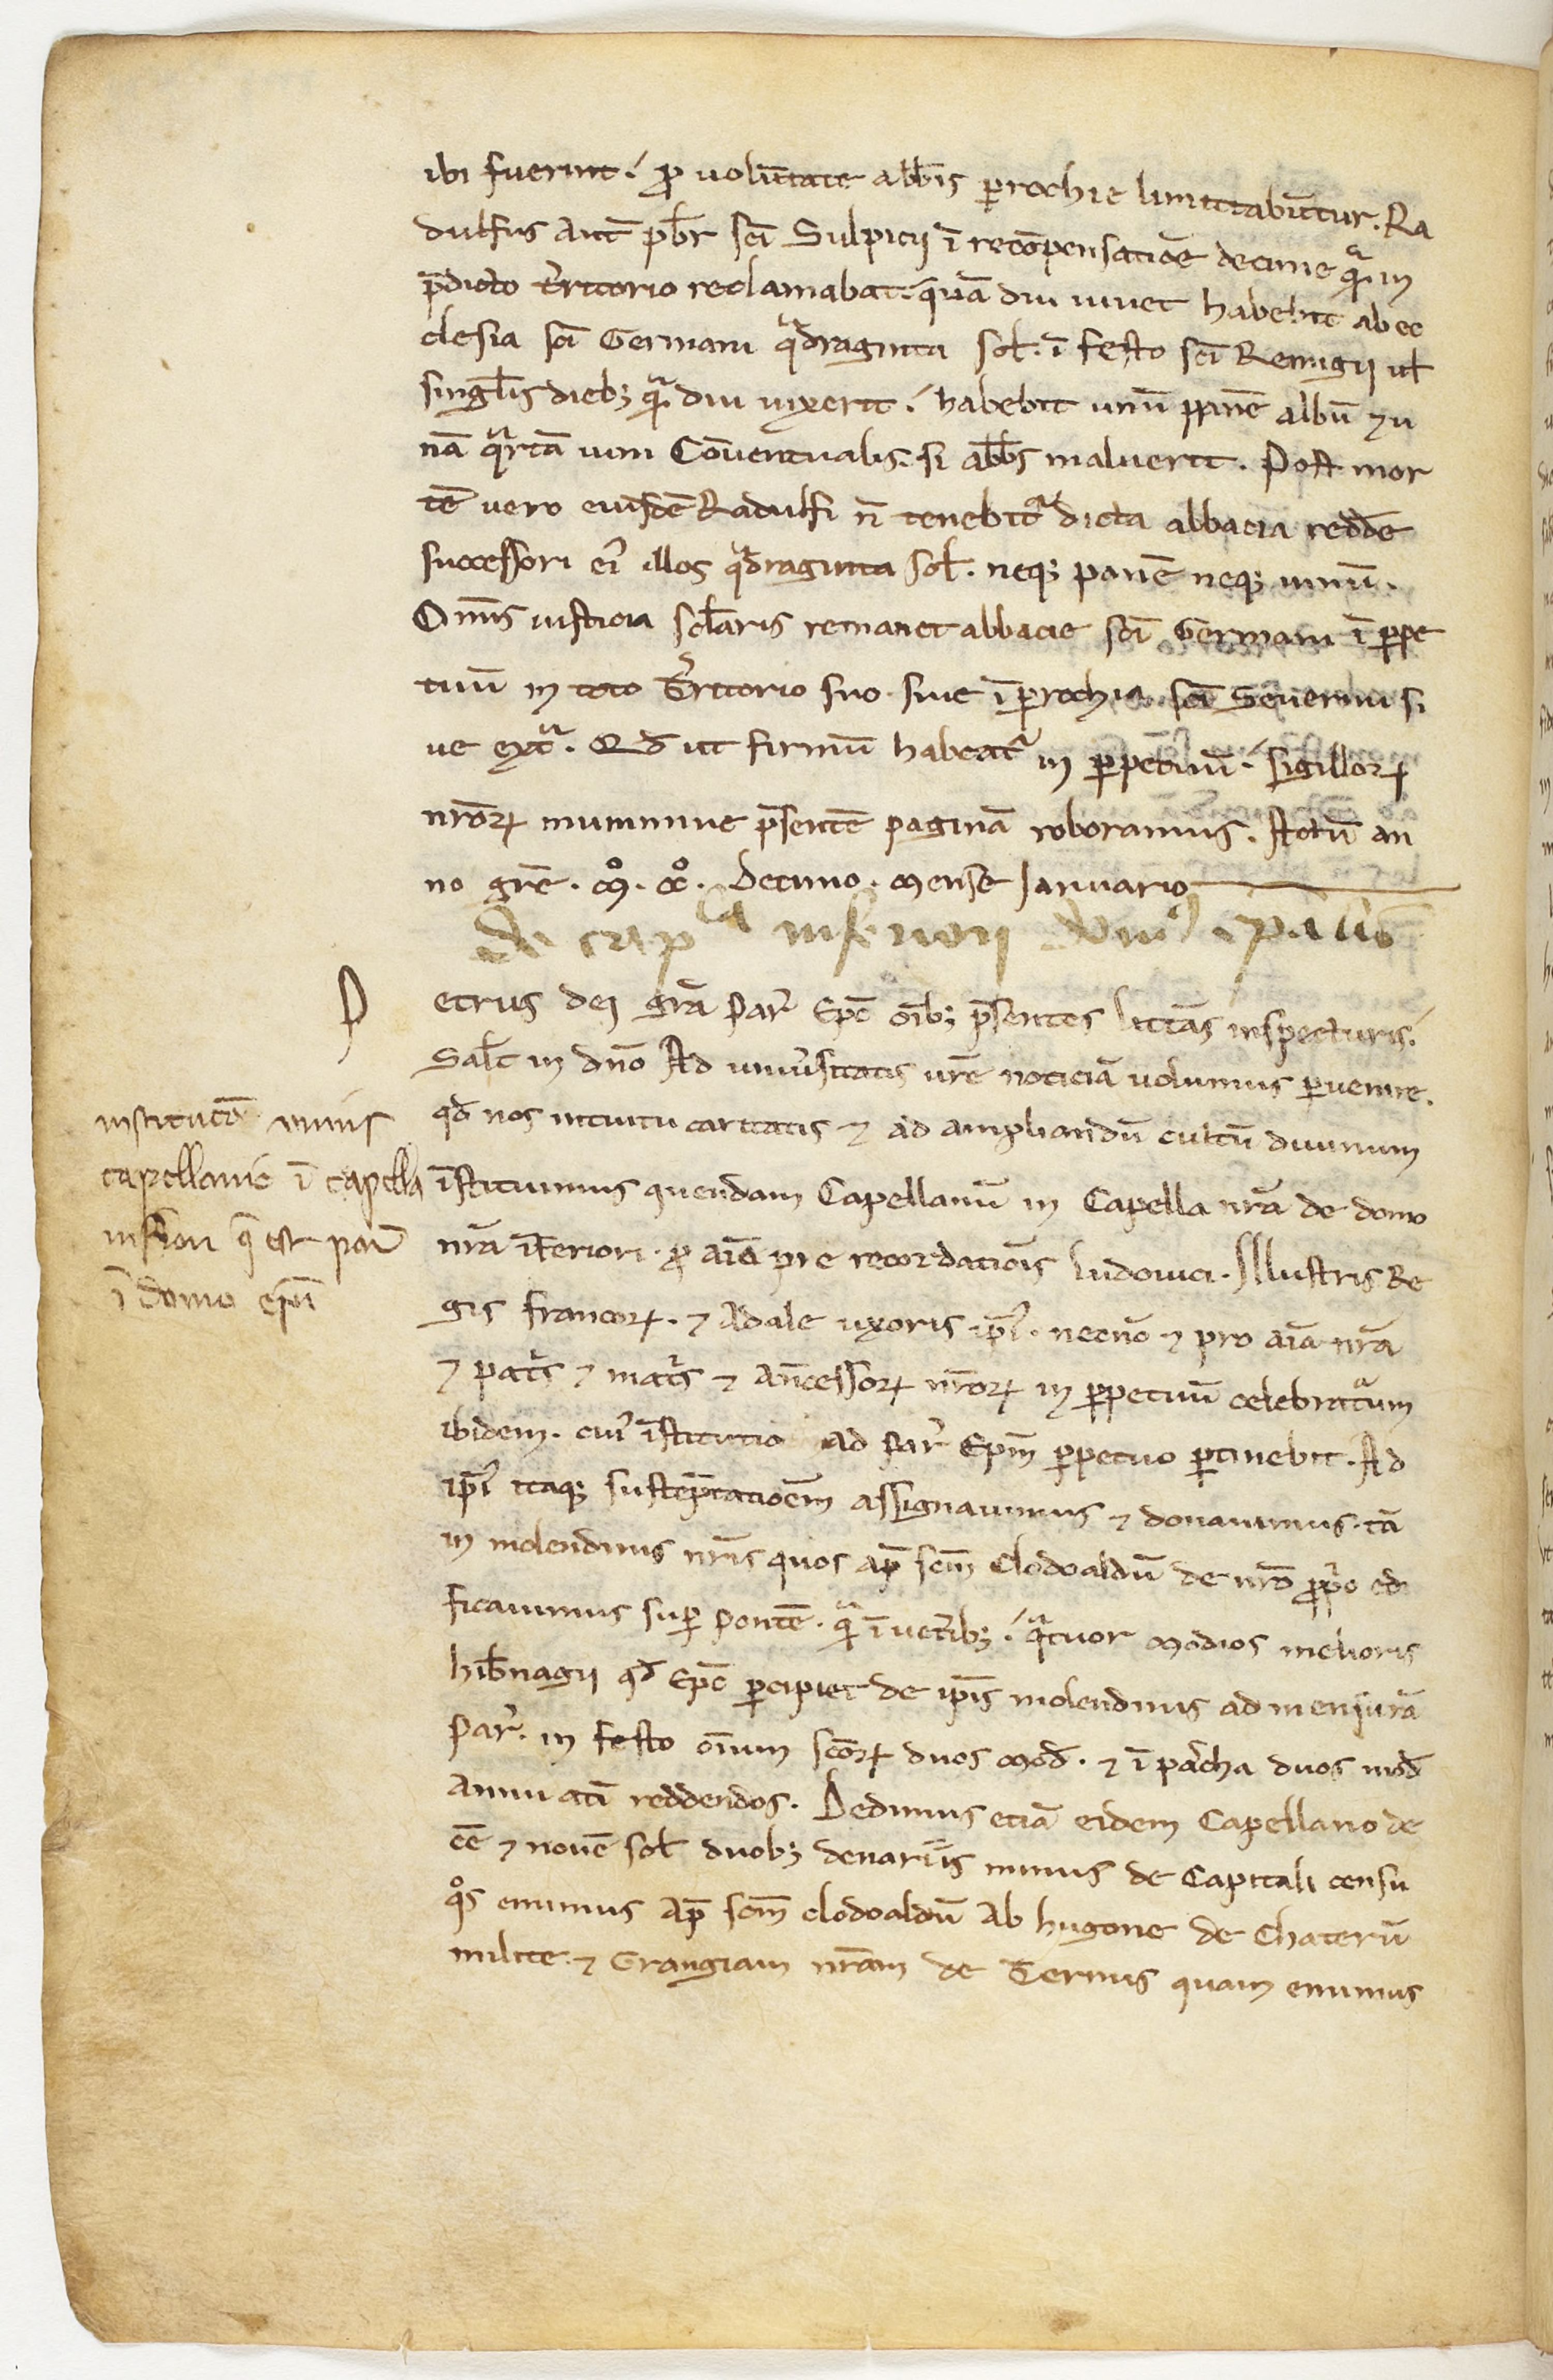 ibi fuerint. ꝓ uolūtate abb̄is ꝑrochie limittabūtur. Ra
dulfus aut̄ pb̄r sc̄i Sulpicij ī recōpensatiōe decime qͣm in
p̄dicto t̄ritorio reclamabat. quādiu uiuet habebit ab ec
clesia sc̄i Germani qͣdraginta sol̄. ī festo sc̄i Remigij ul̄
singul̄is dieb; qͣm diu uixerit. habebit unū panē albū ⁊ u
nā qͣrtā uini Cōuentualis. si abb̄s maluerit. Post mor
tē uero eiusdē Radulfi n̄ tenebit᷑ dicta abbacia reddē
successori ei᷒ illos qͣdraginta sol̄. neq; panē neq; uinū.
Om̄is iusticia sc̄laris remanet abbacie sc̄i Germani ī ꝑpe
tuū in toto T̄ritorio suo. siue ī ꝑrochia sc̄i Seuerini si
ue extͣ. Qd̄ ut firmū habeat᷑ in ꝑpetuū. sigilloꝝ
nr̄oꝝ munimine p̄sentē paginā roboramus. Actū an
no gr̄e. mͦ. ccͦ. Decimo. mense Januario
de capͣ inferiori dom᷒ ep̄alis
P
etrus dei gr̄a Par᷒ Ep̄c oīb; p̄sentes litt̄as inspecturis.
Sal̄t in dn̄o Ad uniu̓sitatis ur̄e noticiā uolumus ꝑuenire.
qd̄ nos intuitu caritatis ⁊ ad ampliandū cultū diuinum
īstituimus quendam Capellanū in Capella nr̄a de domo
nr̄a īferiori. ꝓ aīa pie recordatiōis Ludouici. Illustris Re
gis francoꝝ. ⁊ Adale uxoris ip̄i᷒. necnō ⁊ pro aīa nr̄a
⁊ patͥs ⁊ matͥs ⁊ An̄cessoꝝ nr̄oꝝ in ꝑpetuū celebratͬum
ibidem. cui᷒ īstitutio ad Par᷒ Ep̄m ꝑpetuo ꝑtinebit. Ad
ip̄i᷒ itaq; sustentatiōem assignauimus ⁊ donauimus. tā
in molendinis nr̄is quos ap̄ sc̄m Clodoaldū de nr̄o ꝓpͥo edi
ficauimus suꝑ Pontē. qͣm ī uet̄ib;. qͣtuor modios melioris
hib̄nagij qd̄ Ep̄c ꝑcipiet de ip̄is molendinis ad mensurā
Par᷒. in festo oīum sc̄oꝝ duos mod̄. ⁊ ī pascha duos mod̄
annuatī reddendos. Dedimus etiā eidem Capellano de
cē ⁊ nouē sol̄ duob; denariis minus de Capitali censu
qͦs emimus ap̄ sc̄m clodoaldū ab hugone de Chaterū
milite. ⁊ Grangiam nr̄am de Ternis quam emimus
institutō unius
capellanie ī capella
inferiori q̄ est par᷒
ī domo ep̄i